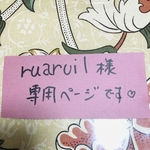 ruaruil 様
専用ページです♡